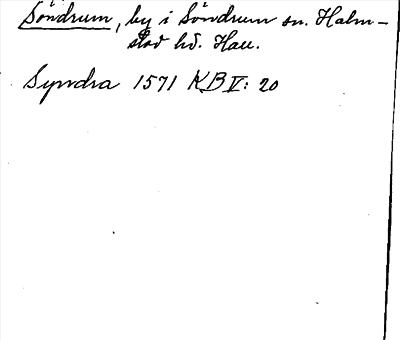 Söndrum, by i Söndrum sn. Halm-
stad hd. Hall.
Syndra 1571 KB V: 20